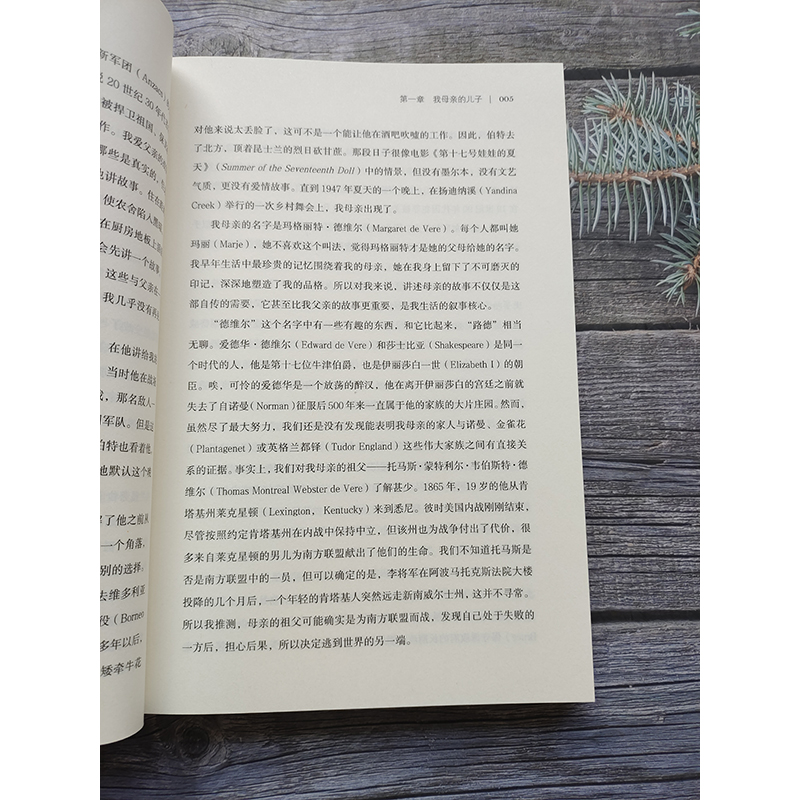 新军团（Anzacs）
20世纪30年代
被捍卫祖国、保
作。我爱父亲的
那些是真实的，
他讲故事。住在
使农舍陷入黑暗
在厨房地板上
会先讲一个故事
这些与父亲在
我几乎没有再
在他讲给我
当时他在战
，那名敌人
军队。但是
伯特也看着他
地默认这个
了他之前从
一个角落，
别的选择。
去维多利亚
役（Borneo
多年以后，
矮牵牛花
第一章 我母亲的儿子 | 005
对他来说太丢脸了，这可不是一个能让他在酒吧吹嘘的工作。因此，伯特去
了北方，顶着昆士兰的烈日砍甘蔗。那段日子很像电影《第十七号娃娃的夏
天》（Summer of the Seventeenth Doll）中的情景，但没有墨尔本，没有文艺
气质，更没有爱情故事。直到 1947 年夏天的一个晚上，在扬迪纳溪（Yandina
Creek）举行的一次乡村舞会上，我母亲出现了。
我母亲的名字是玛格丽特·德维尔（Margaret de Vere）。每个人都叫她
玛丽（Marje），她不喜欢这个叫法，觉得玛格丽特才是她的父母给她的名字。
我早年生活中最珍贵的记忆围绕着我的母亲，她在我身上留下了不可磨灭的
印记，深深地塑造了我的品格。所以对我来说，讲述母亲的故事不仅仅是这
部自传的需要，它甚至比我父亲的故事更重要，是我生活的叙事核心。
“德维尔”这个名字中有一些有趣的东西，和它比起来，“路德”相当
无聊。爱德华·德维尔（Edward de Vere）和莎士比亚（Shakespeare）是同一
个时代的人，他是第十七位牛津伯爵，也是伊丽莎白一世（Elizabeth I）的朝
臣。唉，可怜的爱德华是一个放荡的醉汉，他在离开伊丽莎白的宫廷之前就
失去了自诺曼（Norman）征服后 500 年来一直属于他的家族的大片庄园。然而，
虽然尽了最大努力，我们还是没有发现能表明我母亲的家人与诺曼、金雀花
（Plantagenet）或英格兰都铎（Tudor England）这些伟大家族之间有直接关
系的证据。事实上，我们对我母亲的祖父——托马斯·蒙特利尔·韦伯斯特·德
维尔（Thomas Montreal Webster de Vere）了解甚少。1865 年，19 岁的他从肯
塔基州莱克星顿（Lexington, Kentucky）来到悉尼。彼时美国内战刚刚结束，
尽管按照约定肯塔基州在内战中保持中立，但该州也为战争付出了代价，很
多来自莱克星顿的男儿为南方联盟献出了他们的生命。我们不知道托马斯是
否是南方联盟中的一员，但可以确定的是，李将军在阿波马托克斯法院大楼
投降的几个月后，一个年轻的肯塔基人突然远走新南威尔士州，这并不寻常。
所以我推测，母亲的祖父可能确实是为南方联盟而战，发现自己处于失败的
一方后，担心后果，所以决定逃到世界的另一端。